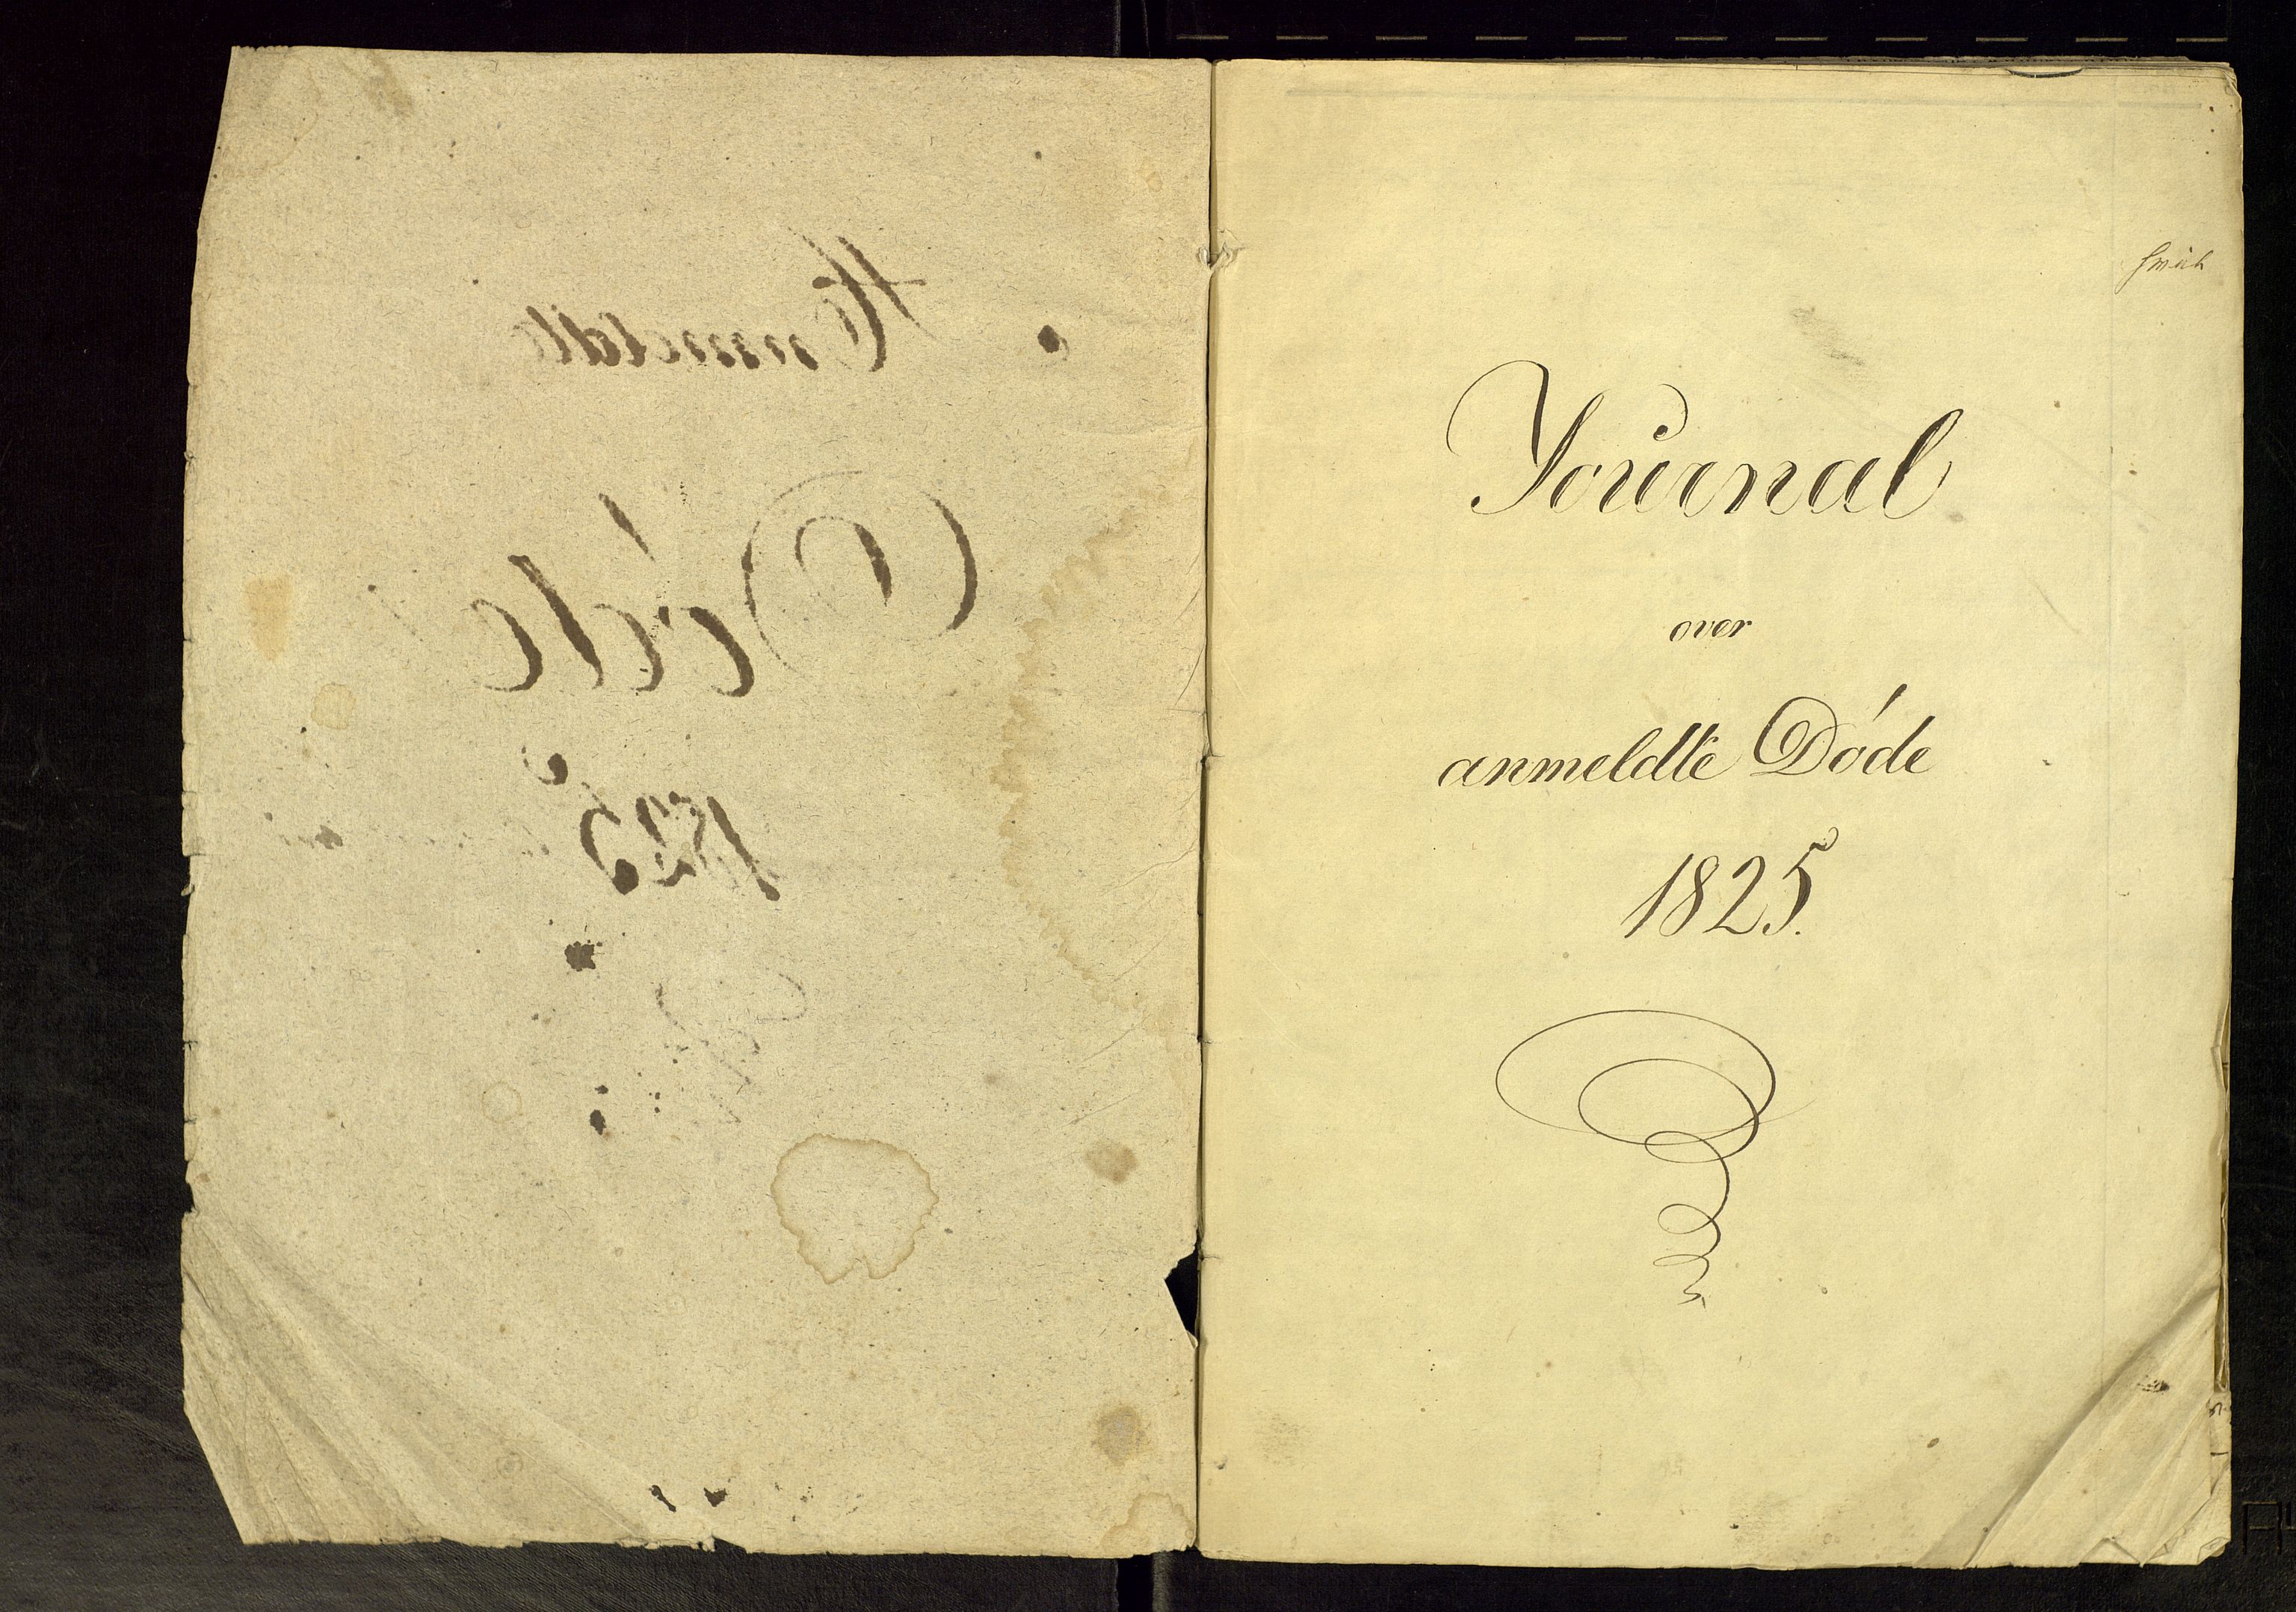 Anmeldte
Døde
1825
Journal
over
anmeldte Døde
1825.